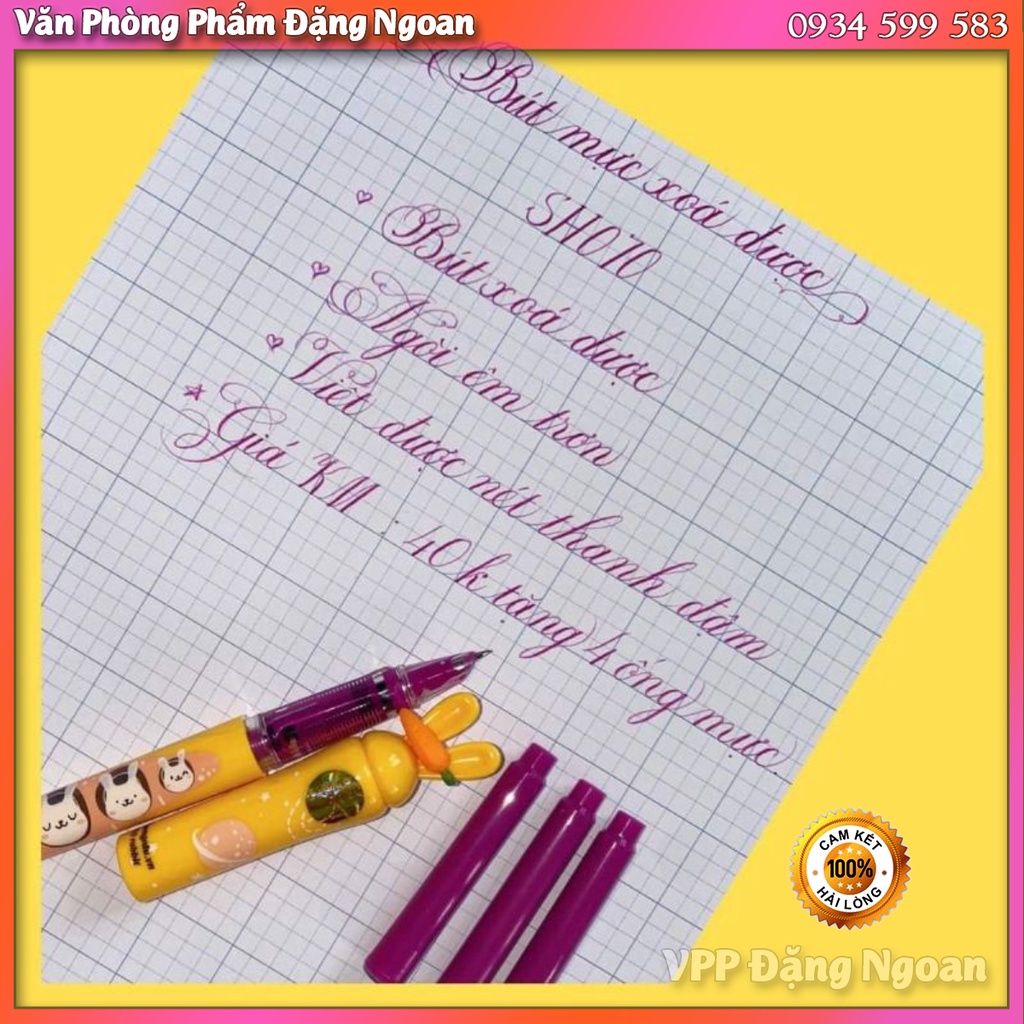 Văn Phòng Phẩm Đặng Ngoan
0934 599 583
Bút mực xoá được
SH070
Bút xoá được
Ngòi êm trơn
Viết được nét thanh đậm
Giá KM 40k tặng 4 ống mực
CAM KẾT
100%
HÀI LÒNG
VPP Đặng Ngoan